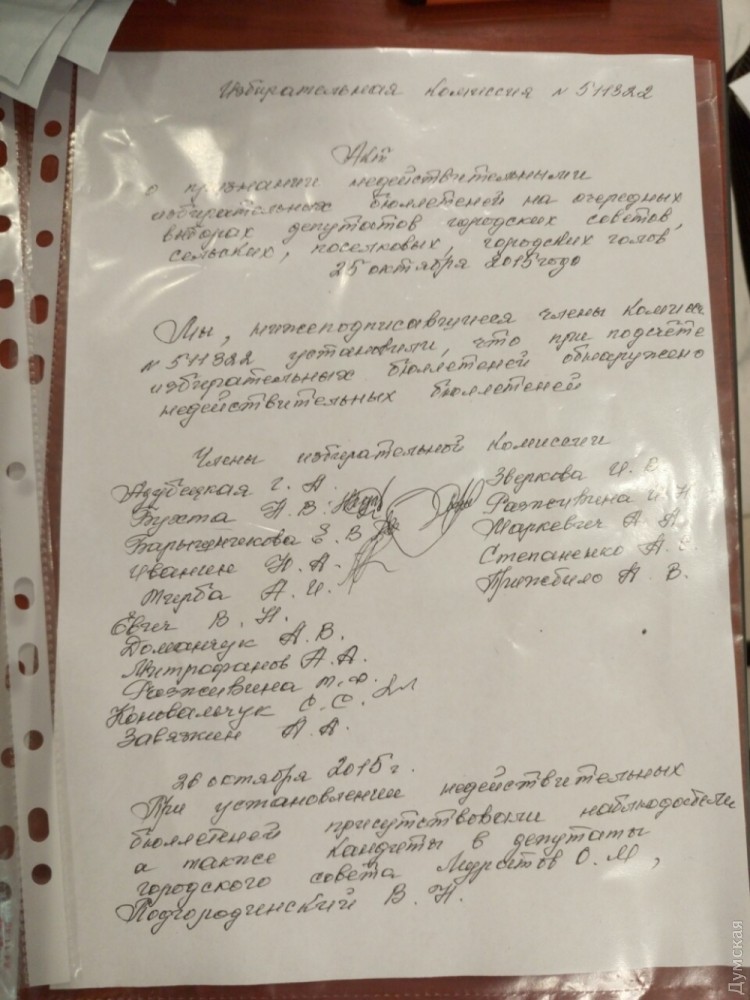 Избирательная комиссия № 511322
Акт
о признании недействительными
избирательных бюллетеней на очередных
выборах депутатов городских советов,
сельских, поселковых, городских голов
25 октября 2015 года
Мы, нижеподписавшиеся члены комисс
№ 511322 установили, что при подсчёте
избирательных бюллетеней обнаружено
недействительных бюллетеней
Члены избирательной комиссии
Г. А.
Бухта Н. В.
Е. В.
Иванин Н. А.
А. И.
Евич В. Н.
Доманчук А. В.
Митрофанов А. А.
Разживина Т. Ф.
Коновальчук С. С.
Завяжкин А. А.
Зверкова И. О.
Разживина И. Н.
Маркевич А. А.
Степаненко А. С.
Прижбило А. В.
26 октября 2015 г.
При установлении недействительных
бюллетеней присутствовали наблюдатели
а также кандеты в депутаты
городского совета О. М,
Подгородинский В. Н.
Думская